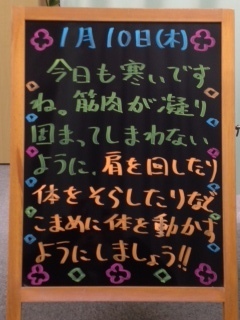 1月10日(木)
今日も寒いです
ね。筋肉が凝り
固まってしまわない
ように、肩を回したり
体をそらしたりなど
こまめに体を動かす
ようにしましょう!!